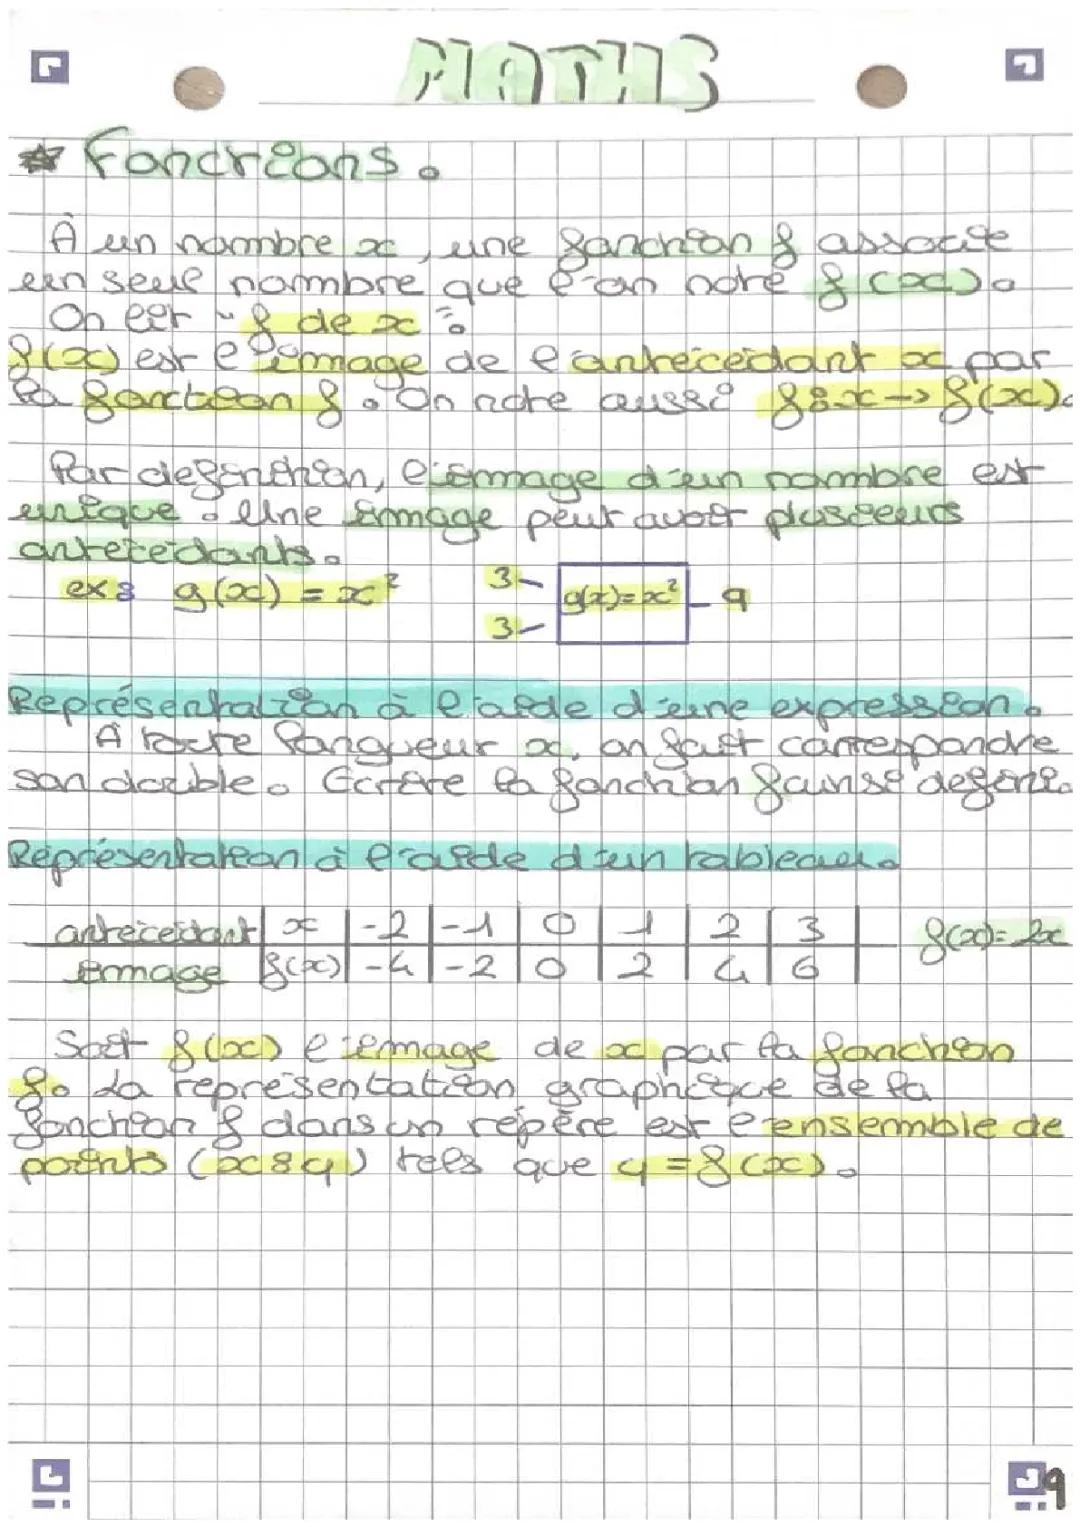 MATHS
* Fonctions.
À un nombre x, une fonction f associe
un seul nombre que l'on note f(x).
On lit "f de x".
f(x) est l'image de l'antécédant x par
la fonction f. On note aussi f:x→f(x).
Par definition, l'image d'un nombre est
unique. Une image peut avoir plusieurs
antécédants.
ex: g(x) = x² 3 g(x)=x² 9
3
Représentation à l'aide d'une expression.
À toute longueur x, on fait correspondre
son double. Ecrire la fonction f ainsi définie.
Représentation à l'aide d'un tableau.
antécédant x -2 -1 0 1 2 3 f(x)=2x
image f(x) -4 -2 0 2 4 6
Soit f(x) l'image de x par la fonction
f. La représentation graphique de la
fonction f dans un repère est l'ensemble de
points (x;y) tels que y=f(x).
9